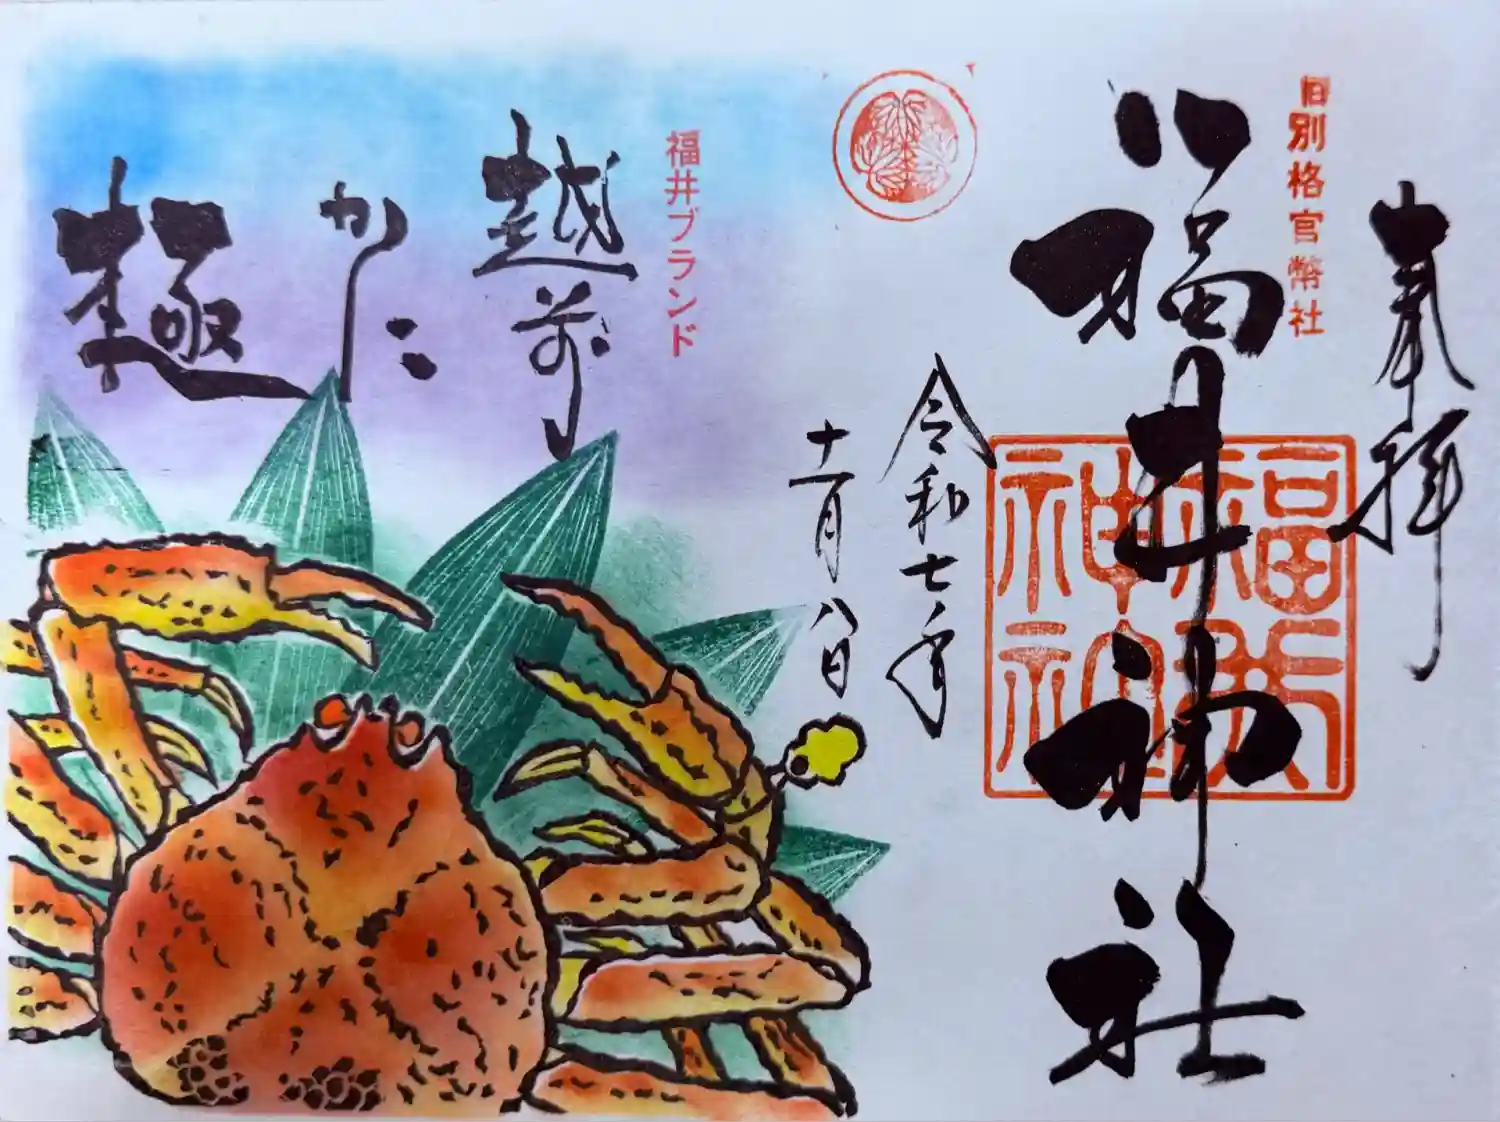 奉拝
旧別格官幣社
福井神社
福井神社
令和七年
十一月八日
福井ブランド
越前
かに
極